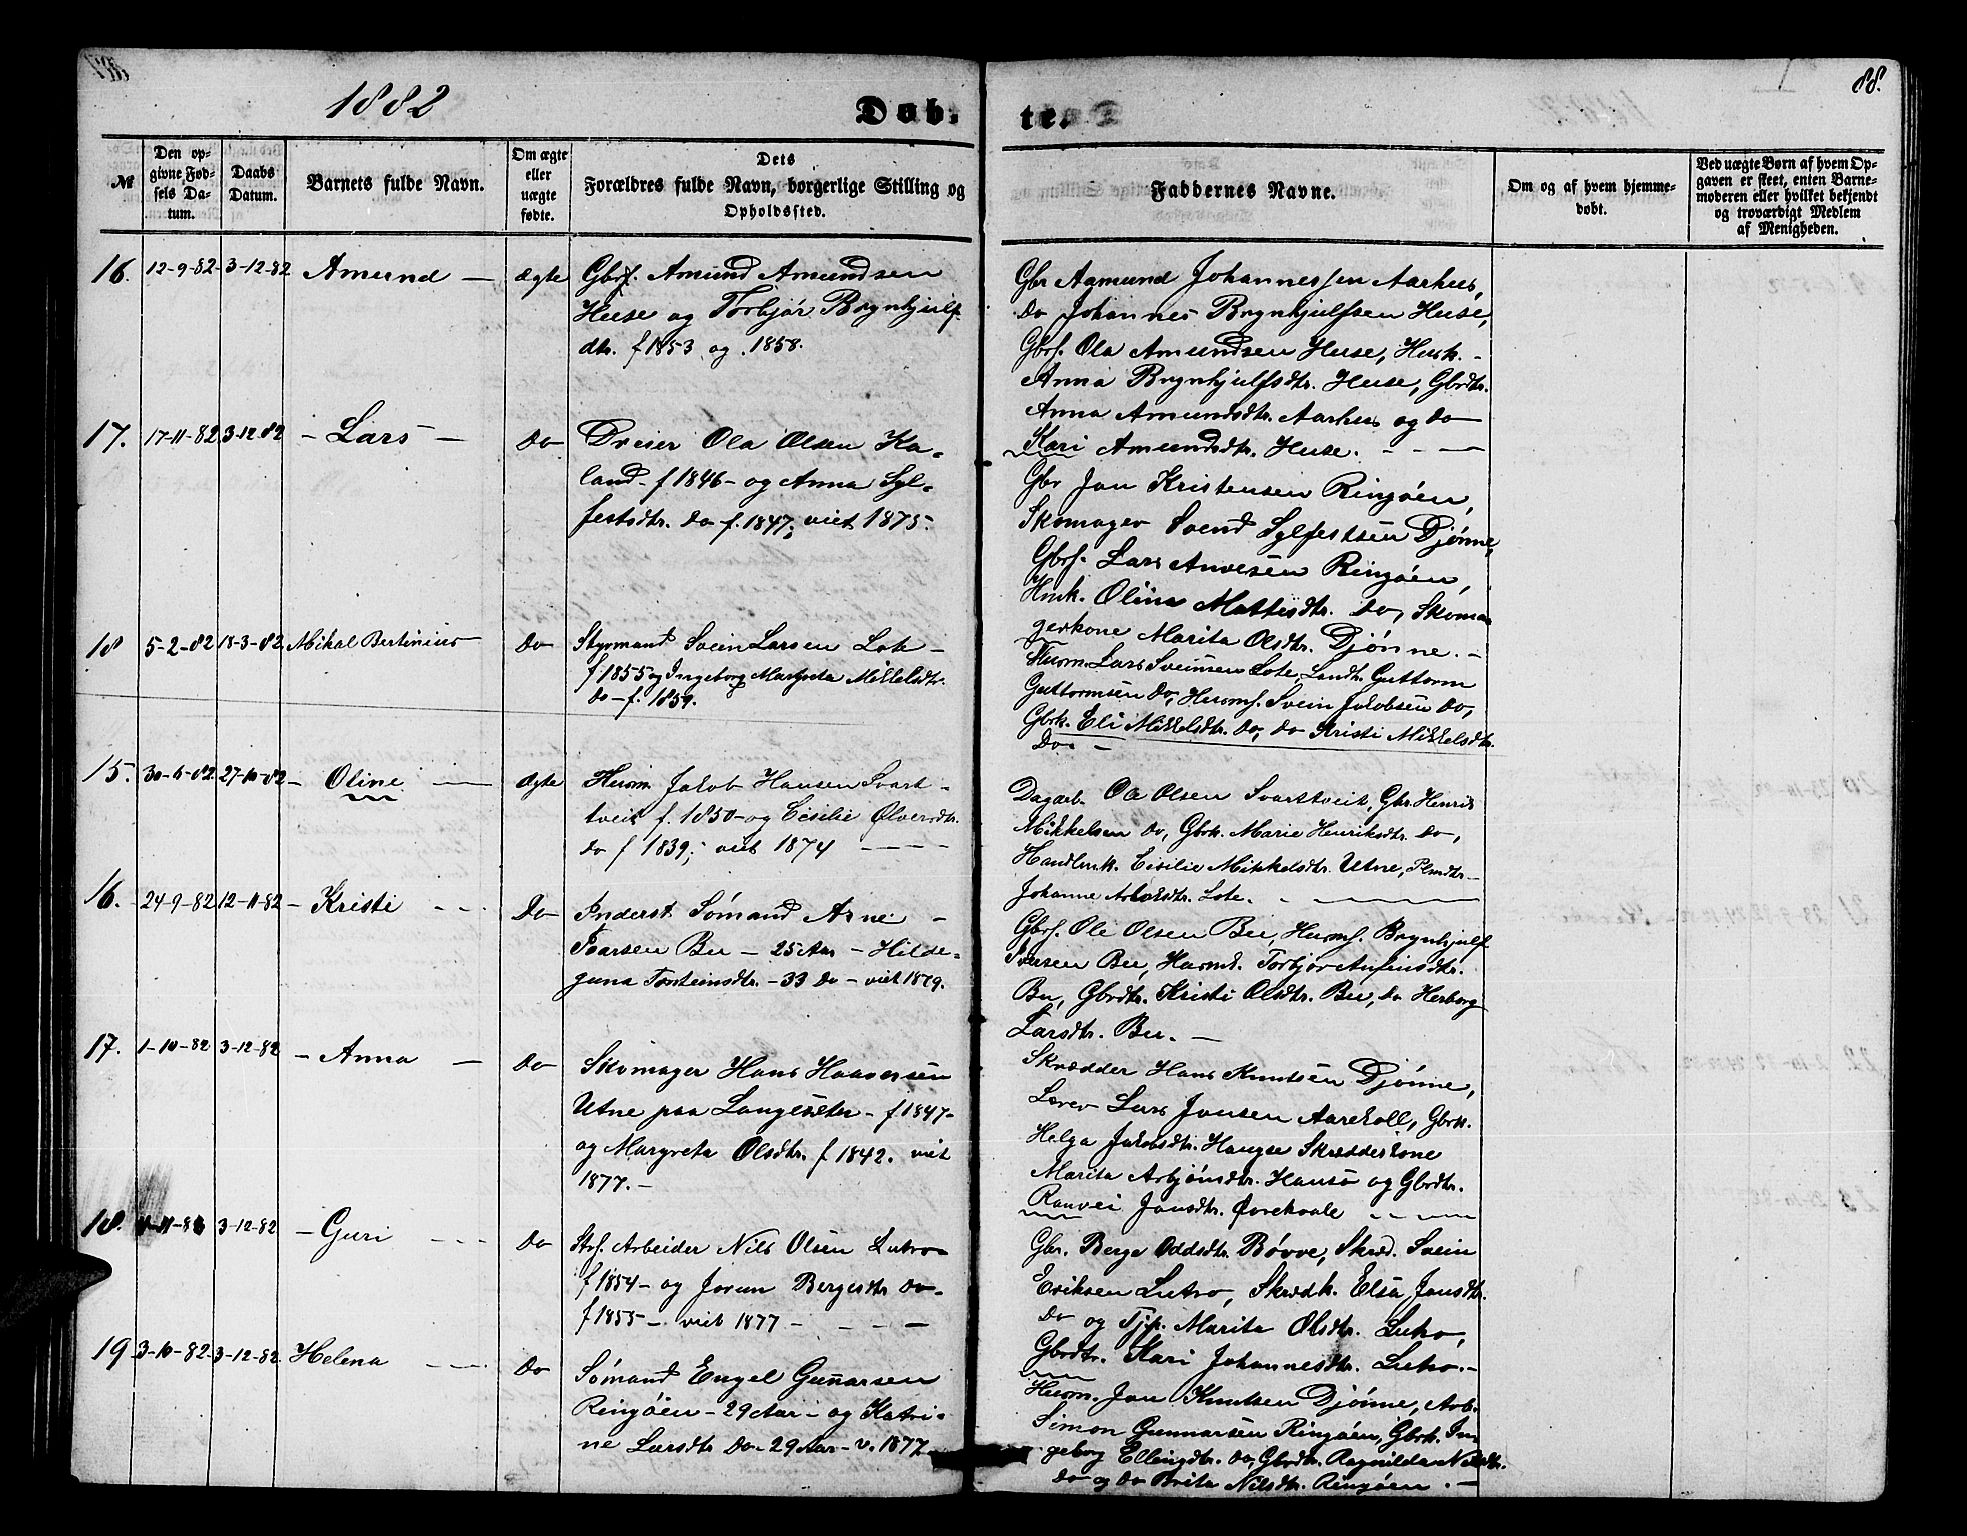 1882
88.
Døb. te.
№
Den op-
givne Fød-
sels Da-
tum.
Daabs
Datum.
Barnets fulde Navn.
Om ægte
eller
uægte
fødte.
Dets
Forældres fulde Navn, borgerlige Stilling og
Opholdssted.
Faddernes Navne.
Om og af hvem hjemme-
døbt.
Ved uægte Børn af hvem Op-
gaven er skeet, enten Barne-
moderen eller hvilket bekjendt
og troværdigt Medlem
af Menigheden.
16. 12-9-82 3-12-82 Amund — ægte Gbrf. Amund Amundsen
Huse og Torbjør Brynhjulf
dtr. f 1853 og . 1858.
Gbr Aamund Johannessen Aarhus,
do Johannes Brynhjulfsen Huse,
Gbrf. Ola Amundsen Huse, Husk. -
Anna Brynhjulfsdtr. Huse, Gbrdtr.
Anna Amundsdtr. Aarhus og do
Kari Amundsdtr. Huse. - - -
17. 17-11-82 3-12-82 - Lars - do Dreier Ola Olsen Ka-
land - f 1846 - og Anna Syl-
festsdtr. do f. 1847; viet 1875.
Gbr Jon Kristensen Ringøen,
Skomager Svend Sylfestsen Djønne,
Gbrf. Lars Anvesen Ringøen,
Husk. Olina Mattisdtr. do, Skoma
gerkone Marita Olsdtr. Djønne. -
18 5-2-82 18-3-82 Mikal Bertinius do Styrmand Svein Larsen Lote -
f 1855 og Ingeborg Margreta Mikkelsdtr.
do - f. 1859.
Husm. Lars Sveinsen Lote, Landh Guttorm
Guttormsen do, Husmf. Svein Jakobsen do,
Gbrk. Eli Mikkelsdtr. do, do Kristi Mikkelsdtr.
do. -
15. 30-6-82 27-10-82 - Oline - ægte Husm. Jakob Hansen Svart-
tveit f. 1850 - og Cisilie Ølversdtr.
do f 1839; viet 1874 - - - -
Dagarb. Ola Olsen Svarttveit, Gbr. Henrik
Mikkelsen do, Gbrk. Marie Henriksdtr. do,
Handlmk. Cisilie Mikkelsdtr. Utne,
Johanne Lote.
16. 24-9-82 12-11-82 - Kristi - - Do Inderst. Sømand Arne -
Ivarsen Bu - 25 Aar - Hilde-
guna Torsteinsdtr. - 33 do - viet 1879.
Gbrf. Ole Olsen Bu, Husmf. Brynhjulf
Ivarsen Bu, Husmk. Torbjør Anfinsdtr.
Bu, Gbrdtr. Kristi Olsdtr. Bu, do Herborg
Larsdtr. Bu. -
17. 1-10-82 3-12-82 - Anna - Do Skomager Hans Haaversen
Utne paa Langesæter - f 1847 -
og Margreta Olsdtr. f 1842. viet
1877. -
Skrædder Hans Knutsen Djønne,
Lærer Lars Jonsen Aarekoll, Gbrk.
Helga Jakobsdtr. Hauge Skrædderkone
Marita Arbjønsdtr. Hanso og Gbrdtr.
Ranvei Jonsdtr. Ørekvale - - -
18. 3-12-82 - Guri - - - Do Strf. Arbeider Nils Olsen Lutro -
f 1854 - og Jorun Bergesdtr do -
f 1855 - . viet 1877 - - - -
Gbr. Berge Oddsdtr. Børve, Skræd. Svein
Eriksen Lutro, Skrædk. Elsa Jonsdtr.
do og Tjp. Marita Olsdtr. Lutro,
Gbrdtr. Kari Johannesdtr. Lutro. -
19 3-10-82 3-12-82 Helena - - - Do Sømand Engel Gunnarsen
Ringøen - 29 Aar - og Katri-
ne Larsdtr do - 29 Aar - v. 1877
Husm. Jon Knutsen Djønne, Arb.
Simon Gunnarsen Ringøen, Gbrk. In-
geborg Ellingdtr. do, Gbrdtr. Ragnilda Nilsdtr.
do og do Brita Nilsdtr. Ringøen. -